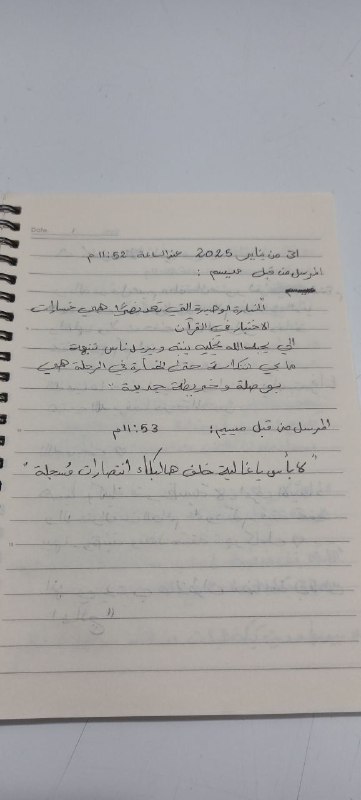 Date / /
من يناير 2025 عند الساعة 11:52م
المرسل من قبل ميسم :
الخسارة الوحيدة التي تعد نصرًا هي خسارات
الاختبار في القرآن
الي يحبه الله يخليه ينتبه ويرسل ناس تنبهه
ما في انتكاسة حتى الخسارة في الرحلة هي
بوصلة وخريطة جديدة
المرسل من قبل ميسم: 11:53م
"لا بأس يا غالية خلف هالبكاء انتصارات مُسجلة"